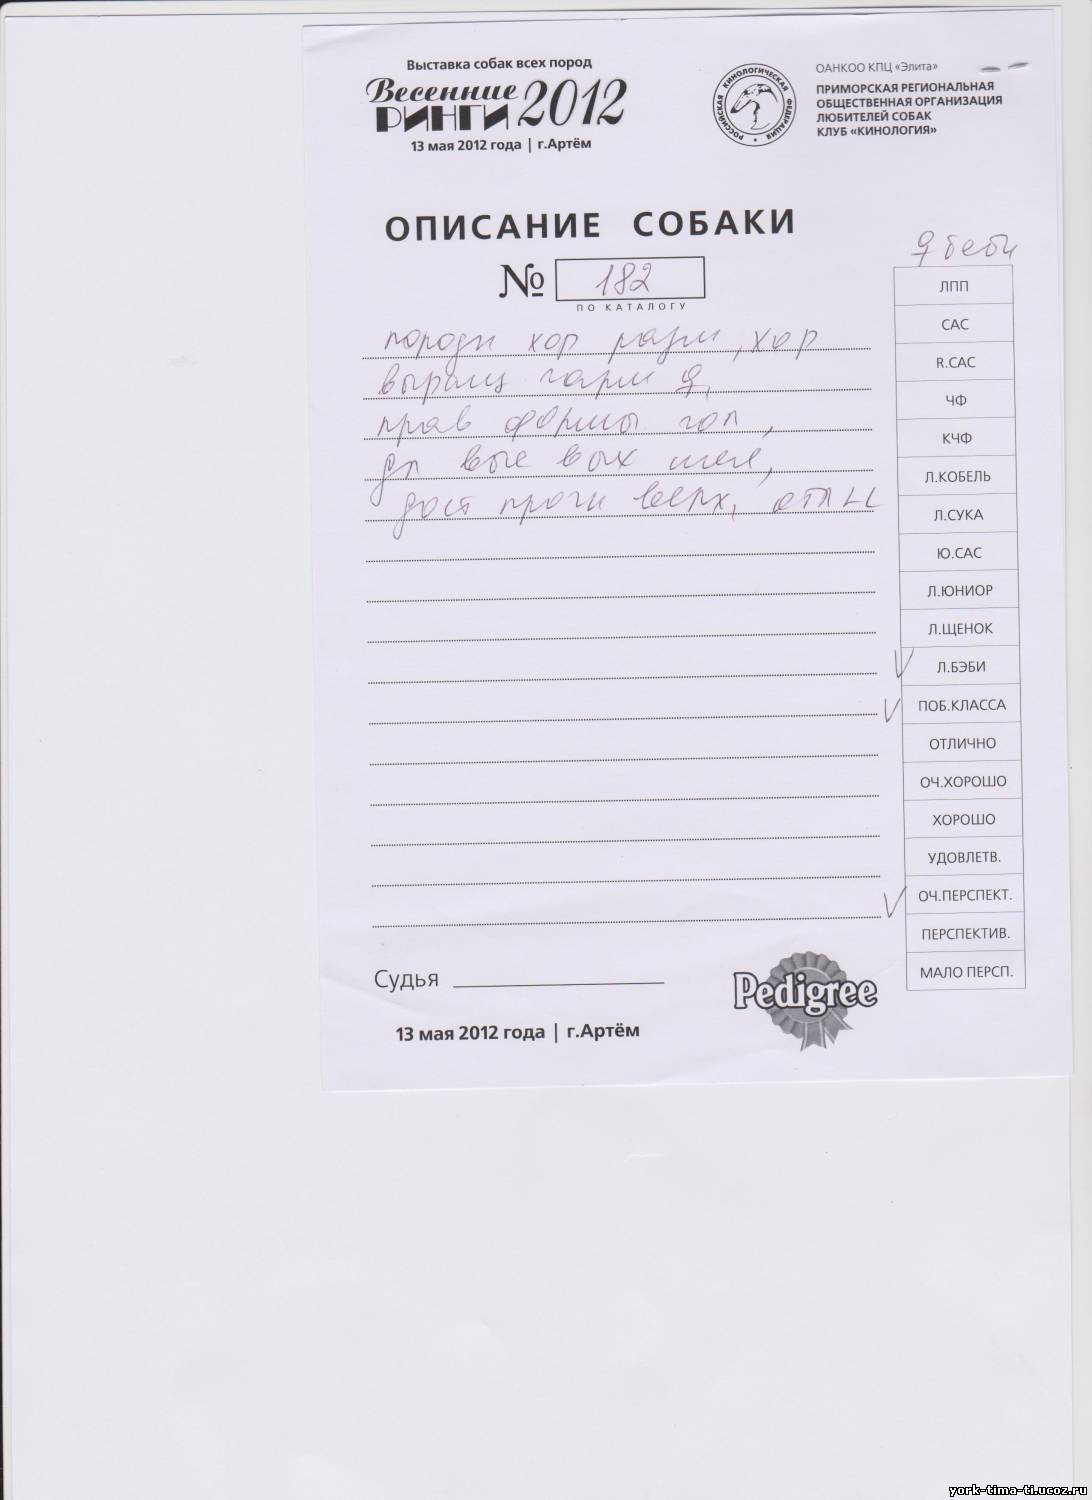 Выставка собак всех пород
Весенние
РИНГИ 2012
13 мая 2012 года | г.Артём
РОССИЙСКАЯ КИНОЛОГИЧЕСКАЯ ФЕДЕРАЦИЯ
ОАНКОО КПЦ «Элита»
ПРИМОРСКАЯ РЕГИОНАЛЬНАЯ
ОБЩЕСТВЕННАЯ ОРГАНИЗАЦИЯ
ЛЮБИТЕЛЕЙ СОБАК
КЛУБ «КИНОЛОГИЯ»
ОПИСАНИЕ СОБАКИ
№ 182
ПО КАТАЛОГУ
♀ беби
породн хор разм, хор
выращ гарм ♀,
прав формы гол,
дл выс вых шея,
дост прочн верх,
ЛПП
САС
R.CAC
ЧФ
КЧФ
Л.КОБЕЛЬ
Л.СУКА
Ю.САС
Л.ЮНИОР
Л.ЩЕНОК
V Л.БЭБИ
V ПОБ.КЛАССА
ОТЛИЧНО
ОЧ.ХОРОШО
ХОРОШО
УДОВЛЕТВ.
V ОЧ.ПЕРСПЕКТ.
ПЕРСПЕКТИВ.
МАЛО ПЕРСП.
Судья
Pedigree
13 мая 2012 года | г.Артём
york-tima-ti.ucoz.ru